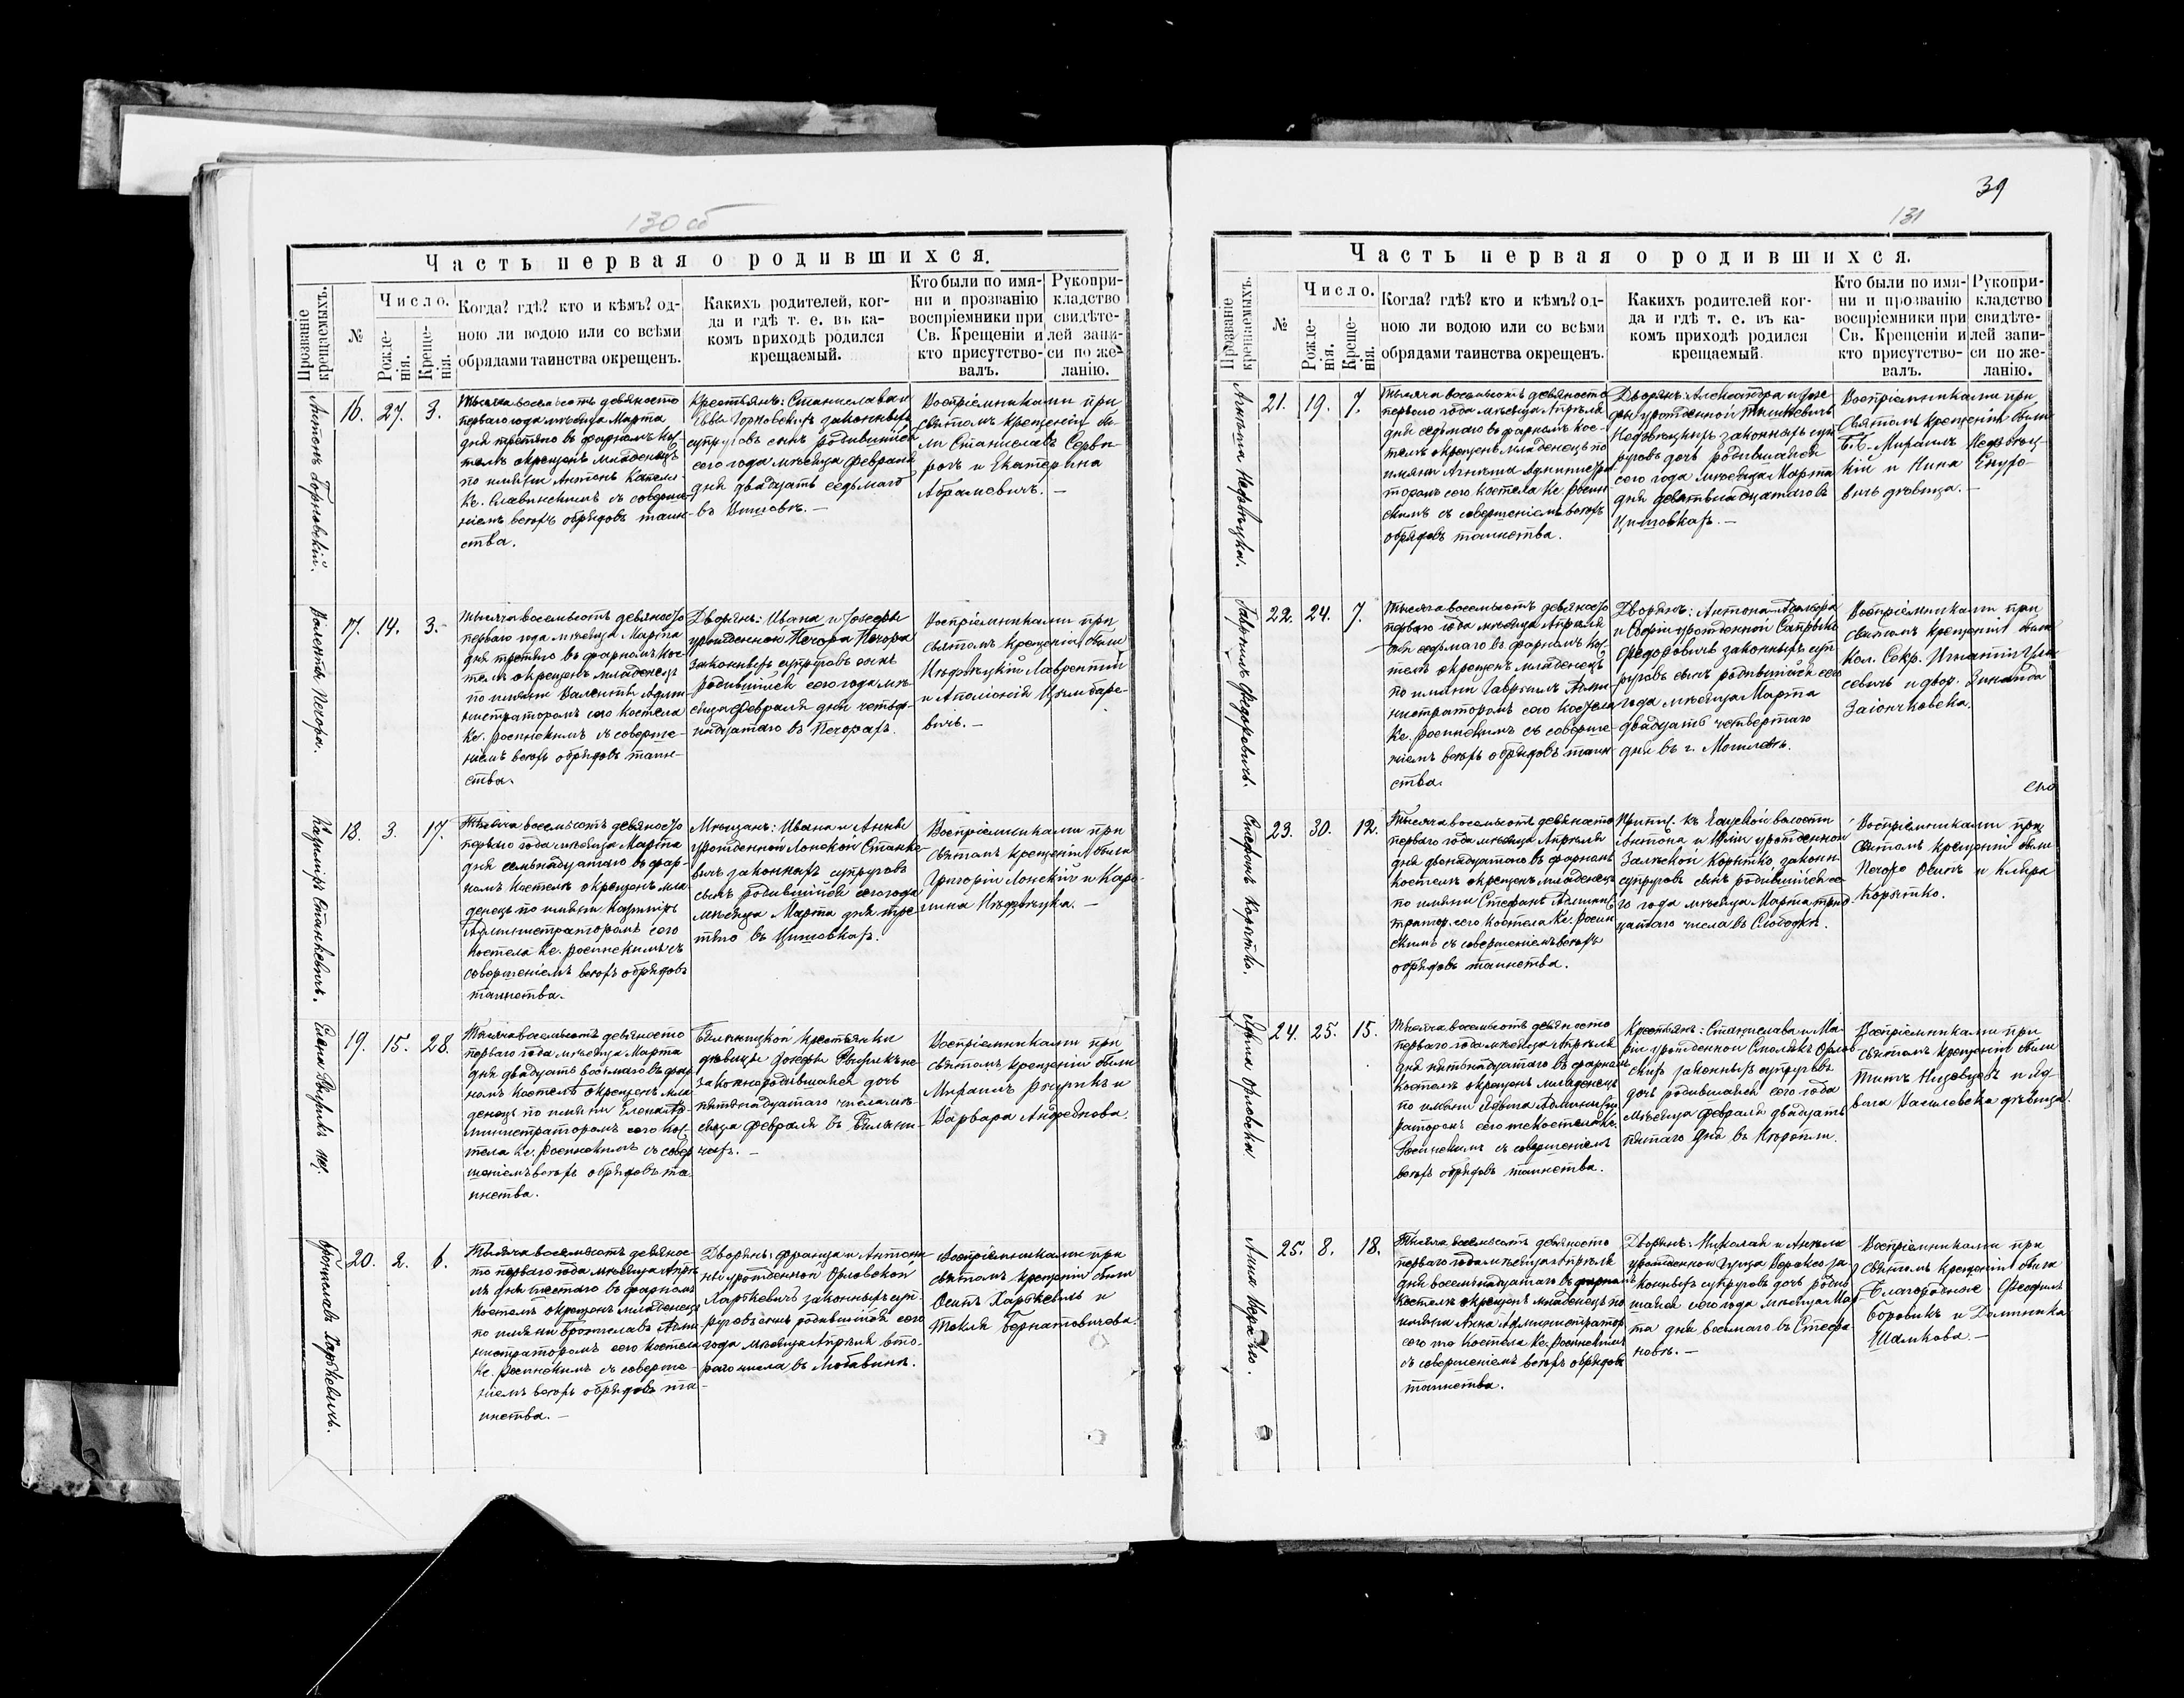 130 об
Часть первая о родившихся.
Прозваніе крещаемыхъ.
№
Число.
Рожде-
нія.
Креще-
нія.
Когда? гдѣ? кто и кѣмъ? од-
ною ли водою или со всѣми
обрядами таинства окрещенъ.
Какихъ родителей, ког-
да и гдѣ т. е. въ ка-
комъ приходѣ родился
крещаемый.
Кто были по имя-
ни и прозванію
воспріемники при
Св. Крещеніи и
кто присутство-
валъ.
Рукопри-
кладство
свидѣте-
лей запи-
си по же-
ланію.
Антонъ Горновскій.
16. 27. 3.
Тысяча восемьсотъ девяносто
перваго года мѣсяца Марта
дня третяго въ фарномъ кос-
телѣ окрещенъ младенецъ
по имяни Антонъ
Кс. Славинскимъ съ соверше-
ніемъ всѣхъ обрядовъ таин-
ства.
Крестьянъ: Станислава и
Евы Горновскихъ законныхъ
супруговъ сынъ родившійся
сего года мѣсяца Февраля
дня двадцать седьмаго
въ
Воспріемниками при
святомъ крещеніи бы-
ли Станиславъ
и Екатерина
Абрамовичъ. —
Валентій Печора.
17. 14. 3.
Тысяча восемьсотъ девяносто
перваго года мѣсяца Марта
дня третяго въ фарномъ кос-
телѣ окрещенъ младенецъ
по имяни Валентій Адми-
нистраторомъ сего костела
Кс. Росинскимъ съ соверше-
ніемъ всѣхъ обрядовъ таин-
ства.
Дворянъ: Ивана и Іозефы
урожденной Печора Печора
законныхъ супруговъ сынъ
родившійся сего года мѣ-
сяца Февраля дня четыр-
надцатаго въ Печорахъ.
Воспріемниками при
святомъ крещеніи были
Лаврентій
и Аполонія Цимбаре-
вичъ. —
Казиміръ Станкевичъ.
18. 3. 17.
Тысяча восемьсотъ девяносто
перваго года мѣсяца Марта
дня семьнадцатаго въ фар-
номъ костелѣ окрещенъ мла-
денецъ по имяни Казиміръ
Администраторомъ сего
костела Кс. Росинскимъ съ
совершеніемъ всѣхъ обрядовъ
таинства.
Мѣщанъ: Ивана и Анны
урожденной Лонской Станке-
вичъ законныхъ супруговъ
сынъ родившійся сего года
мѣсяца Марта дня тре-
тяго въ Цишовкахъ.
Воспріемниками при
святомъ крещеніи были
Григорій Лонскій и Каро-
лина Недзвѣцка. —
Елена Рыцикъ нез.
19. 15. 28.
Тысяча восемьсотъ девяносто
перваго года мѣсяца Марта
дня двадцать восьмаго въ фар-
номъ костелѣ окрещенъ мла-
денецъ по имяни Елена Ад-
министраторомъ сего кос-
тела Кс. Росинскимъ съ совер-
шеніемъ всѣхъ обрядовъ та-
инства.
Бялыницкой крестьянки
дѣвицы Іозефы Рыцикъ не-
законнородившаяся дочь
пятнадцатаго числа мѣ-
сяца Февраля въ Бялыни-
чахъ. —
Воспріемниками при
святомъ крещеніи были
Михаилъ Рыцикъ и
Варвара Андреёнова.
Брониславъ Харкевичъ.
20. 2. 6.
Тысяча восемьсотъ девянос-
то перваго года мѣсяца Апрѣ-
ля дня шестаго въ фарномъ
костелѣ окрещенъ младенецъ
по имяни Брониславъ Адми-
нистраторомъ сего костела
Кс. Росинскимъ съ соверше-
ніемъ всѣхъ обрядовъ та-
инства. —
Дворянъ: Франца и Антони-
ны урожденной Орловской
Харкевичъ законныхъ суп-
руговъ сынъ родившійся сего
года мѣсяца Апрѣля вто-
раго числа въ
Воспріемниками при
святомъ крещеніи были
Осипъ Харкевичъ и
Текля Бернатовичова.
39
131
Часть первая о родившихся.
Прозваніе крещаемыхъ.
№
Число.
Рожде-
нія.
Креще-
нія.
Когда? гдѣ? кто и кѣмъ? од-
ною ли водою или со всѣми
обрядами таинства окрещенъ.
Какихъ родителей ког-
да и гдѣ т. е. въ ка-
комъ приходѣ родился
крещаемый.
Кто были по имя-
ни и прозванію
воспріемники при
Св. Крещеніи и
кто присутство-
валъ.
Рукопри-
кладство
свидѣте-
лей запи-
си по же-
ланію.
Агнешка Недзвѣцка.
21. 19. 7.
Тысяча восемьсотъ девяносто
перваго года мѣсяца Апрѣля
дня седьмаго въ фарномъ кос-
телѣ окрещенъ младенецъ по
имяни Агнешка Администра-
торомъ сего костела Кс. Росин-
скимъ съ совершеніемъ всѣхъ
обрядовъ таинства.
Дворянъ: Александра и Іозе-
фы урожденной Тышкевичъ
Недзвѣцкихъ законныхъ суп-
руговъ дочь родившаяся
сего года мѣсяца Марта
дня девятнадцатаго въ
Цишовкахъ. —
Воспріемниками при
святомъ крещеніи были
Михаилъ Недзвѣц-
кій и Нина
вичъ дѣвица. —
Гавріилъ Федоровичъ.
22. 24. 7.
Тысяча восемьсотъ девяносто
перваго года мѣсяца Апрѣля
дня седьмаго въ фарномъ кос-
телѣ окрещенъ младенецъ
по имяни Гавріилъ Адми-
нистраторомъ сего костела
Кс. Росинскимъ съ соверше-
ніемъ всѣхъ обрядовъ таин-
ства.
Дворянъ: Антона
и Софіи урожденной
Федоровичъ законныхъ суп-
руговъ сынъ родившійся сего
года мѣсяца Марта
двадцать четвертаго
дня въ г. Могилевѣ.
Воспріемниками при
святомъ крещеніи были
Кол. Секр. Игнатій
севичъ и двор. Зинаида
Заіончковска.
Стефанъ Корытко.
23. 30. 12.
Тысяча восемьсотъ девяносто
перваго года мѣсяца Апрѣля
дня двенадцатаго въ фарномъ
костелѣ окрещенъ младенецъ
по имяни Стефанъ Админис-
тратор. сего костела Кс. Росин-
скимъ съ совершеніемъ всѣхъ
обрядовъ таинства.
волости
Антона и Юліи урожденной
Залѣской Корытко законн.
супруговъ сынъ родившійся се-
го года мѣсяца Марта трид-
цатаго числа въ Слободкѣ.
Воспріемниками при
святомъ крещеніи были
Печоро Осипъ и Клара
Корытко.
Ядвига Орловска
24. 25. 15.
Тысяча восемьсотъ девяносто
перваго года мѣсяца Апрѣля
дня пятнадцатаго въ фарномъ
костелѣ окрещенъ младенецъ
по имяни Ядвига Админист-
раторомъ сего же костела Кс.
Росинскимъ съ совершеніемъ
всѣхъ обрядовъ таинства.
Крестьянъ: Станислава и Ма-
ріи урожденной Смолякъ Орлов-
скихъ законныхъ супруговъ
дочь родившаяся сего года
мѣсяца Февраля двадцать
пятаго дня въ
Воспріемниками при
святомъ крещеніи были
Титъ Низовцовъ и Яд-
вига Василевска дѣвица.
Анна Верадко.
25. 8. 18.
Тысяча восемьсотъ девяносто
перваго года мѣсяца Апрѣля
дня восемьнадцатаго въ фарномъ
костелѣ окрещенъ младенецъ по
имяни Анна Администратор.
сего же костела Кс. Росинскимъ
съ совершеніемъ всѣхъ обрядовъ
таинства.
Дворянъ: Николая и Анели
урожденной за-
конныхъ супруговъ дочь родив-
шаяся сего года мѣсяца Мар-
та дня восьмаго въ Стефа-
новкѣ. —
Воспріемниками при
святомъ крещеніи были
Благородные Ѳеофилъ
Боровикъ и Доминика
Шалкова. —